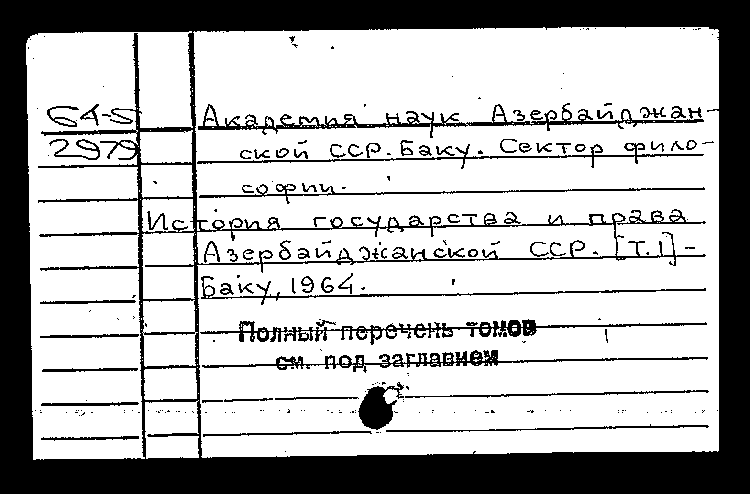 64-5 Академия наук Азербайджан-
2979 ской ССР. Баку. Сектор фило-
софии.
История государства и права
Азербайджанской ССР. [Т.1]-
Баку, 1964.
Полный перечень томов
см. под заглавием